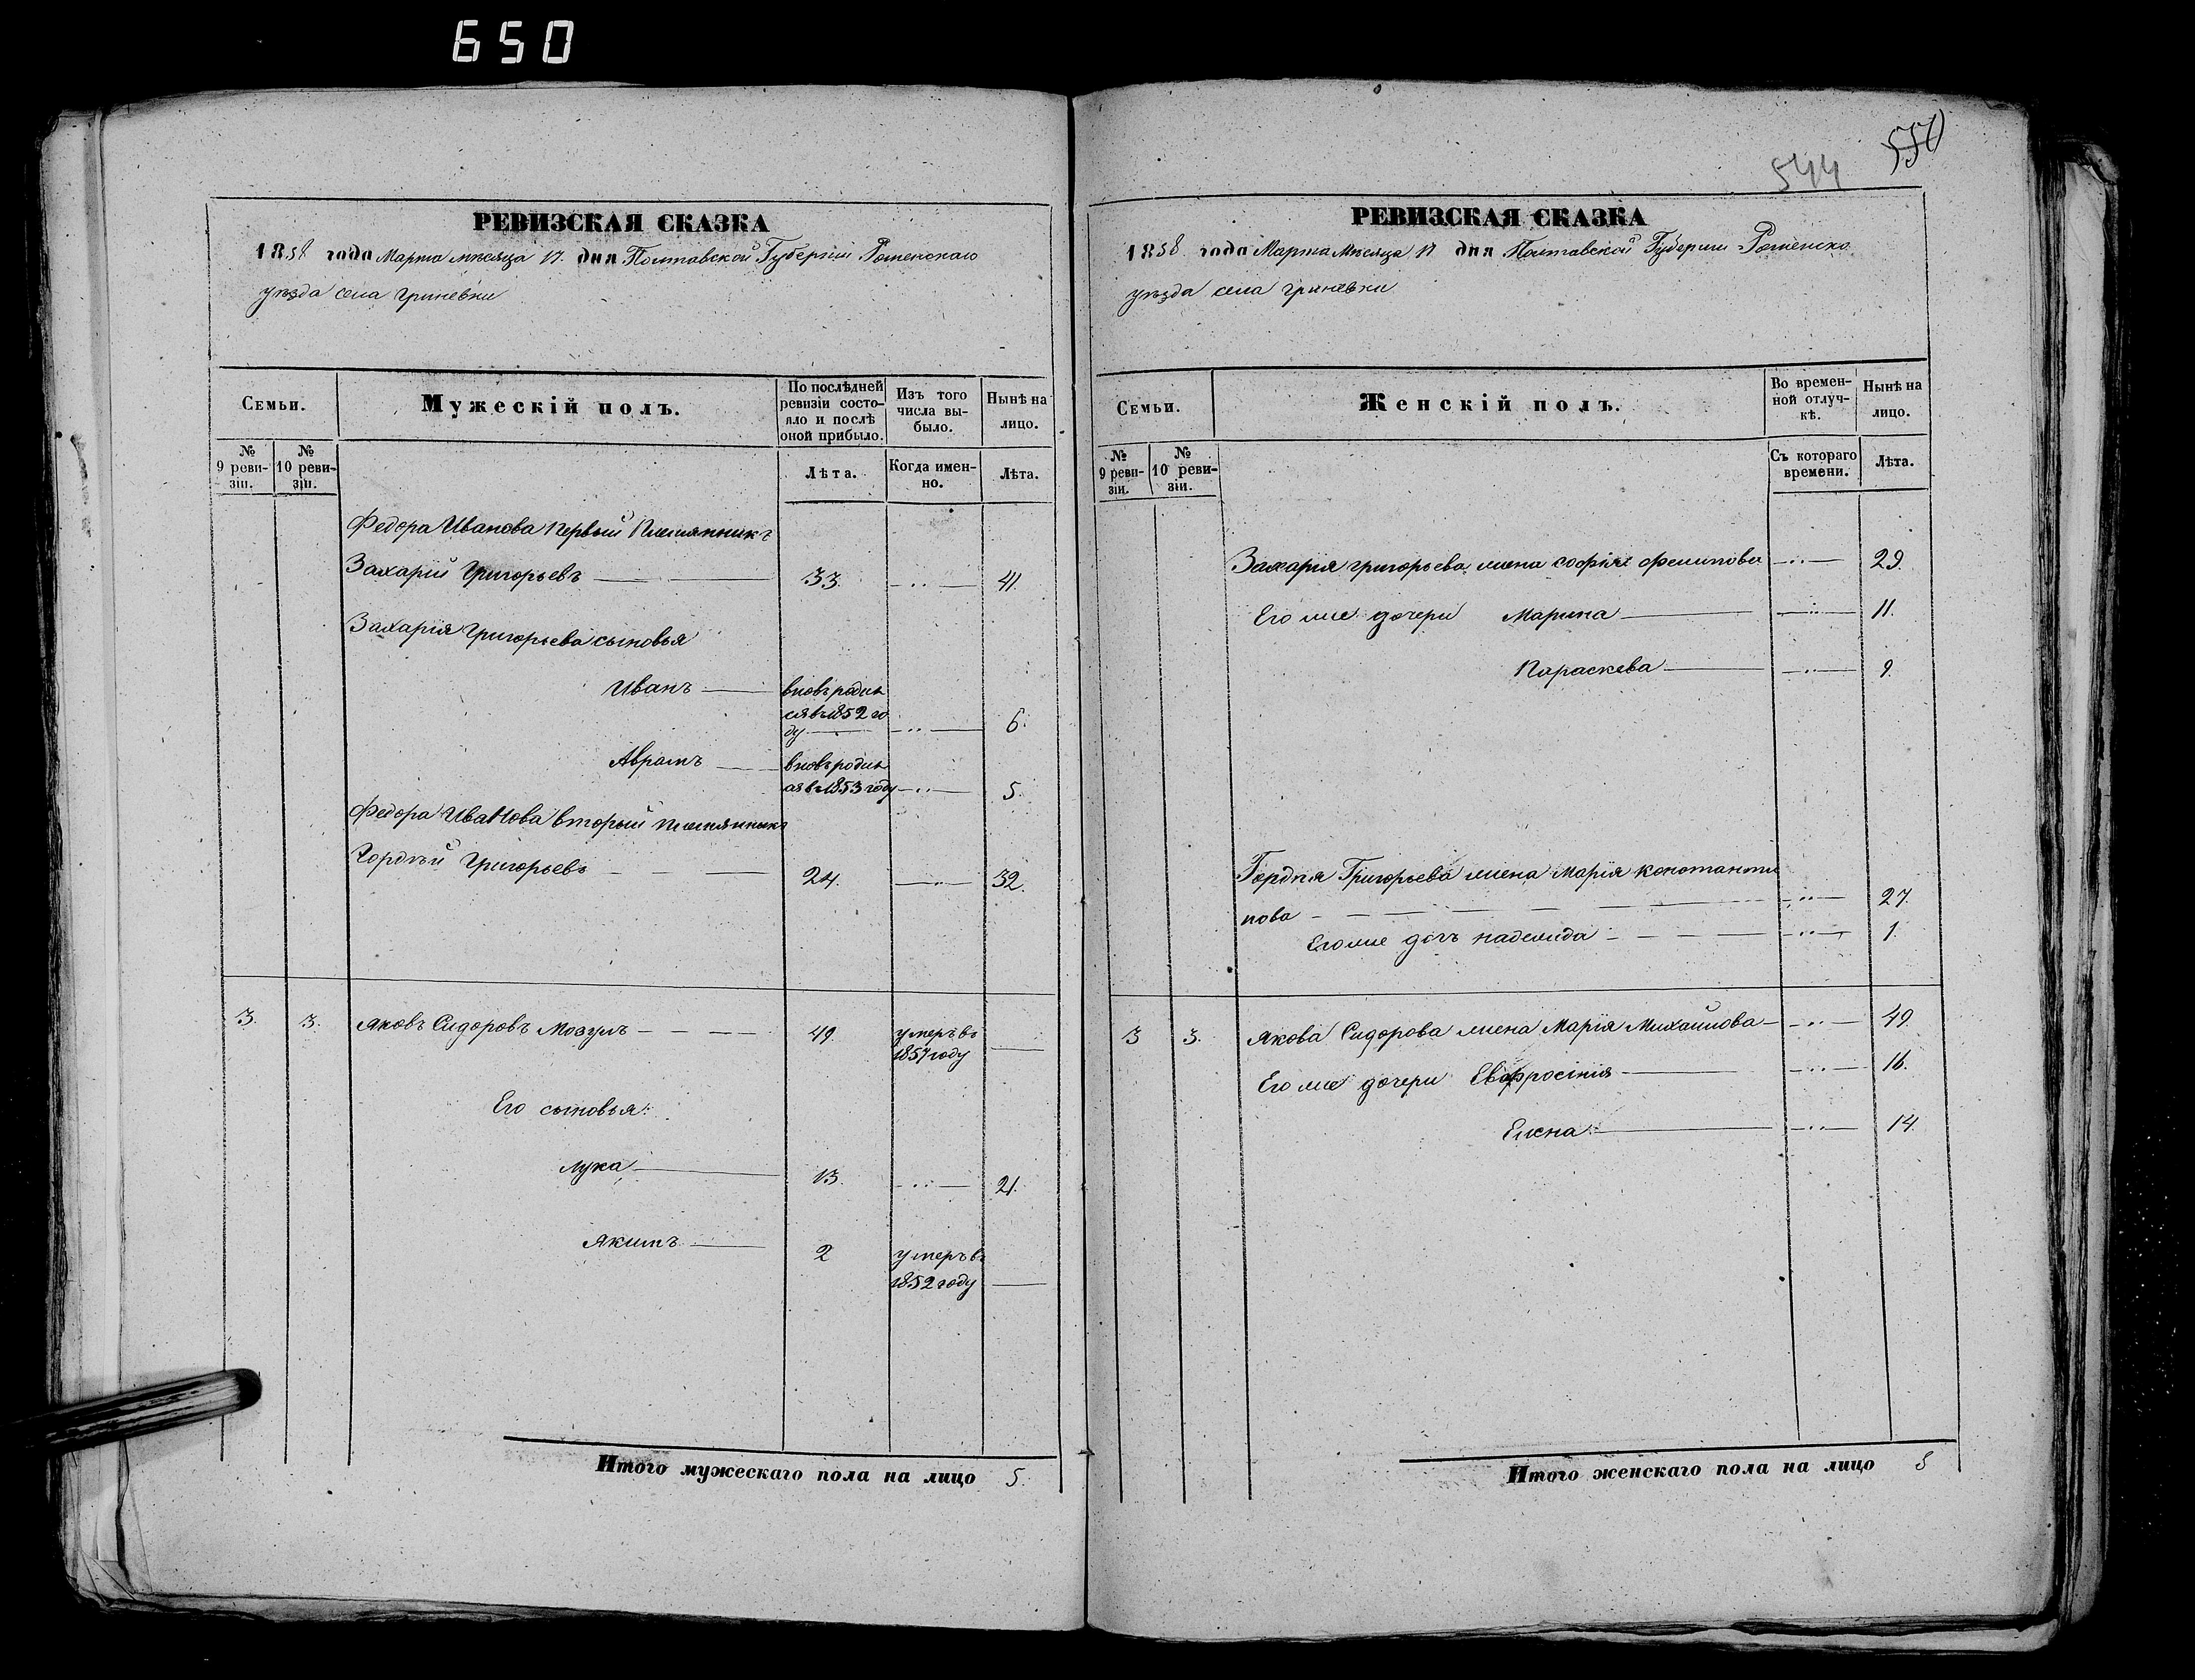 650
РЕВИЗСКАЯ СКАЗКА
1858 года Марта месяца 17. дня Полтавской Губерніи Роменскаго
уѣзда села Гриневки
Семьи.
Мужескій полъ.
По послѣдней ревизіи состояло и послѣ оной прибыло.
Изъ того числа выбыло.
Нынѣ на лицо.
№ 9 ревизіи.
№ 10 ревизіи.
Лѣта.
Когда именно.
Лѣта.
Федора Иванова Первый Племянникъ
Захарій Григорьевъ 33. 41.
Захарія Григорьева сыновья
Иванъ вновь родил
ся въ 1852 го
ду 6.
Аврамъ вновь родил
ся в 1853 году 5.
Федора Иванова второй племянникъ
Гордѣй Григорьевъ 24. 32.
3. 3. Яковъ Сидоровъ Мозуль 49. умеръ въ
1857 году
Его сыновья:
Лука 13. 21.
Якимъ 2 умеръ въ
1852 году
Итого мужескаго пола на лицо 5.
544
РЕВИЗСКАЯ СКАЗКА
1858 года Марта Месяца 17 дня Полтавской Губерніи Роменско
уѣзда села Гриневки
Семьи.
Женскій полъ.
Во временной отлучкѣ.
Нынѣ на лицо.
№ 9 ревизіи.
№ 10 ревизіи.
Съ котораго времени.
Лѣта.
Захарія Григорьева жена Софія Филипова 29.
Его же дочери Марина 11.
Параскева 9.
Гордѣя Григорьева жена Марія Константи
нова 27.
Его же дочь надежда 1.
3 3. Якова Сидорова жена Марія Михайлова 49.
Его же дочери Евфросінія 16.
Елена 14.
Итого женскаго пола на лицо 8